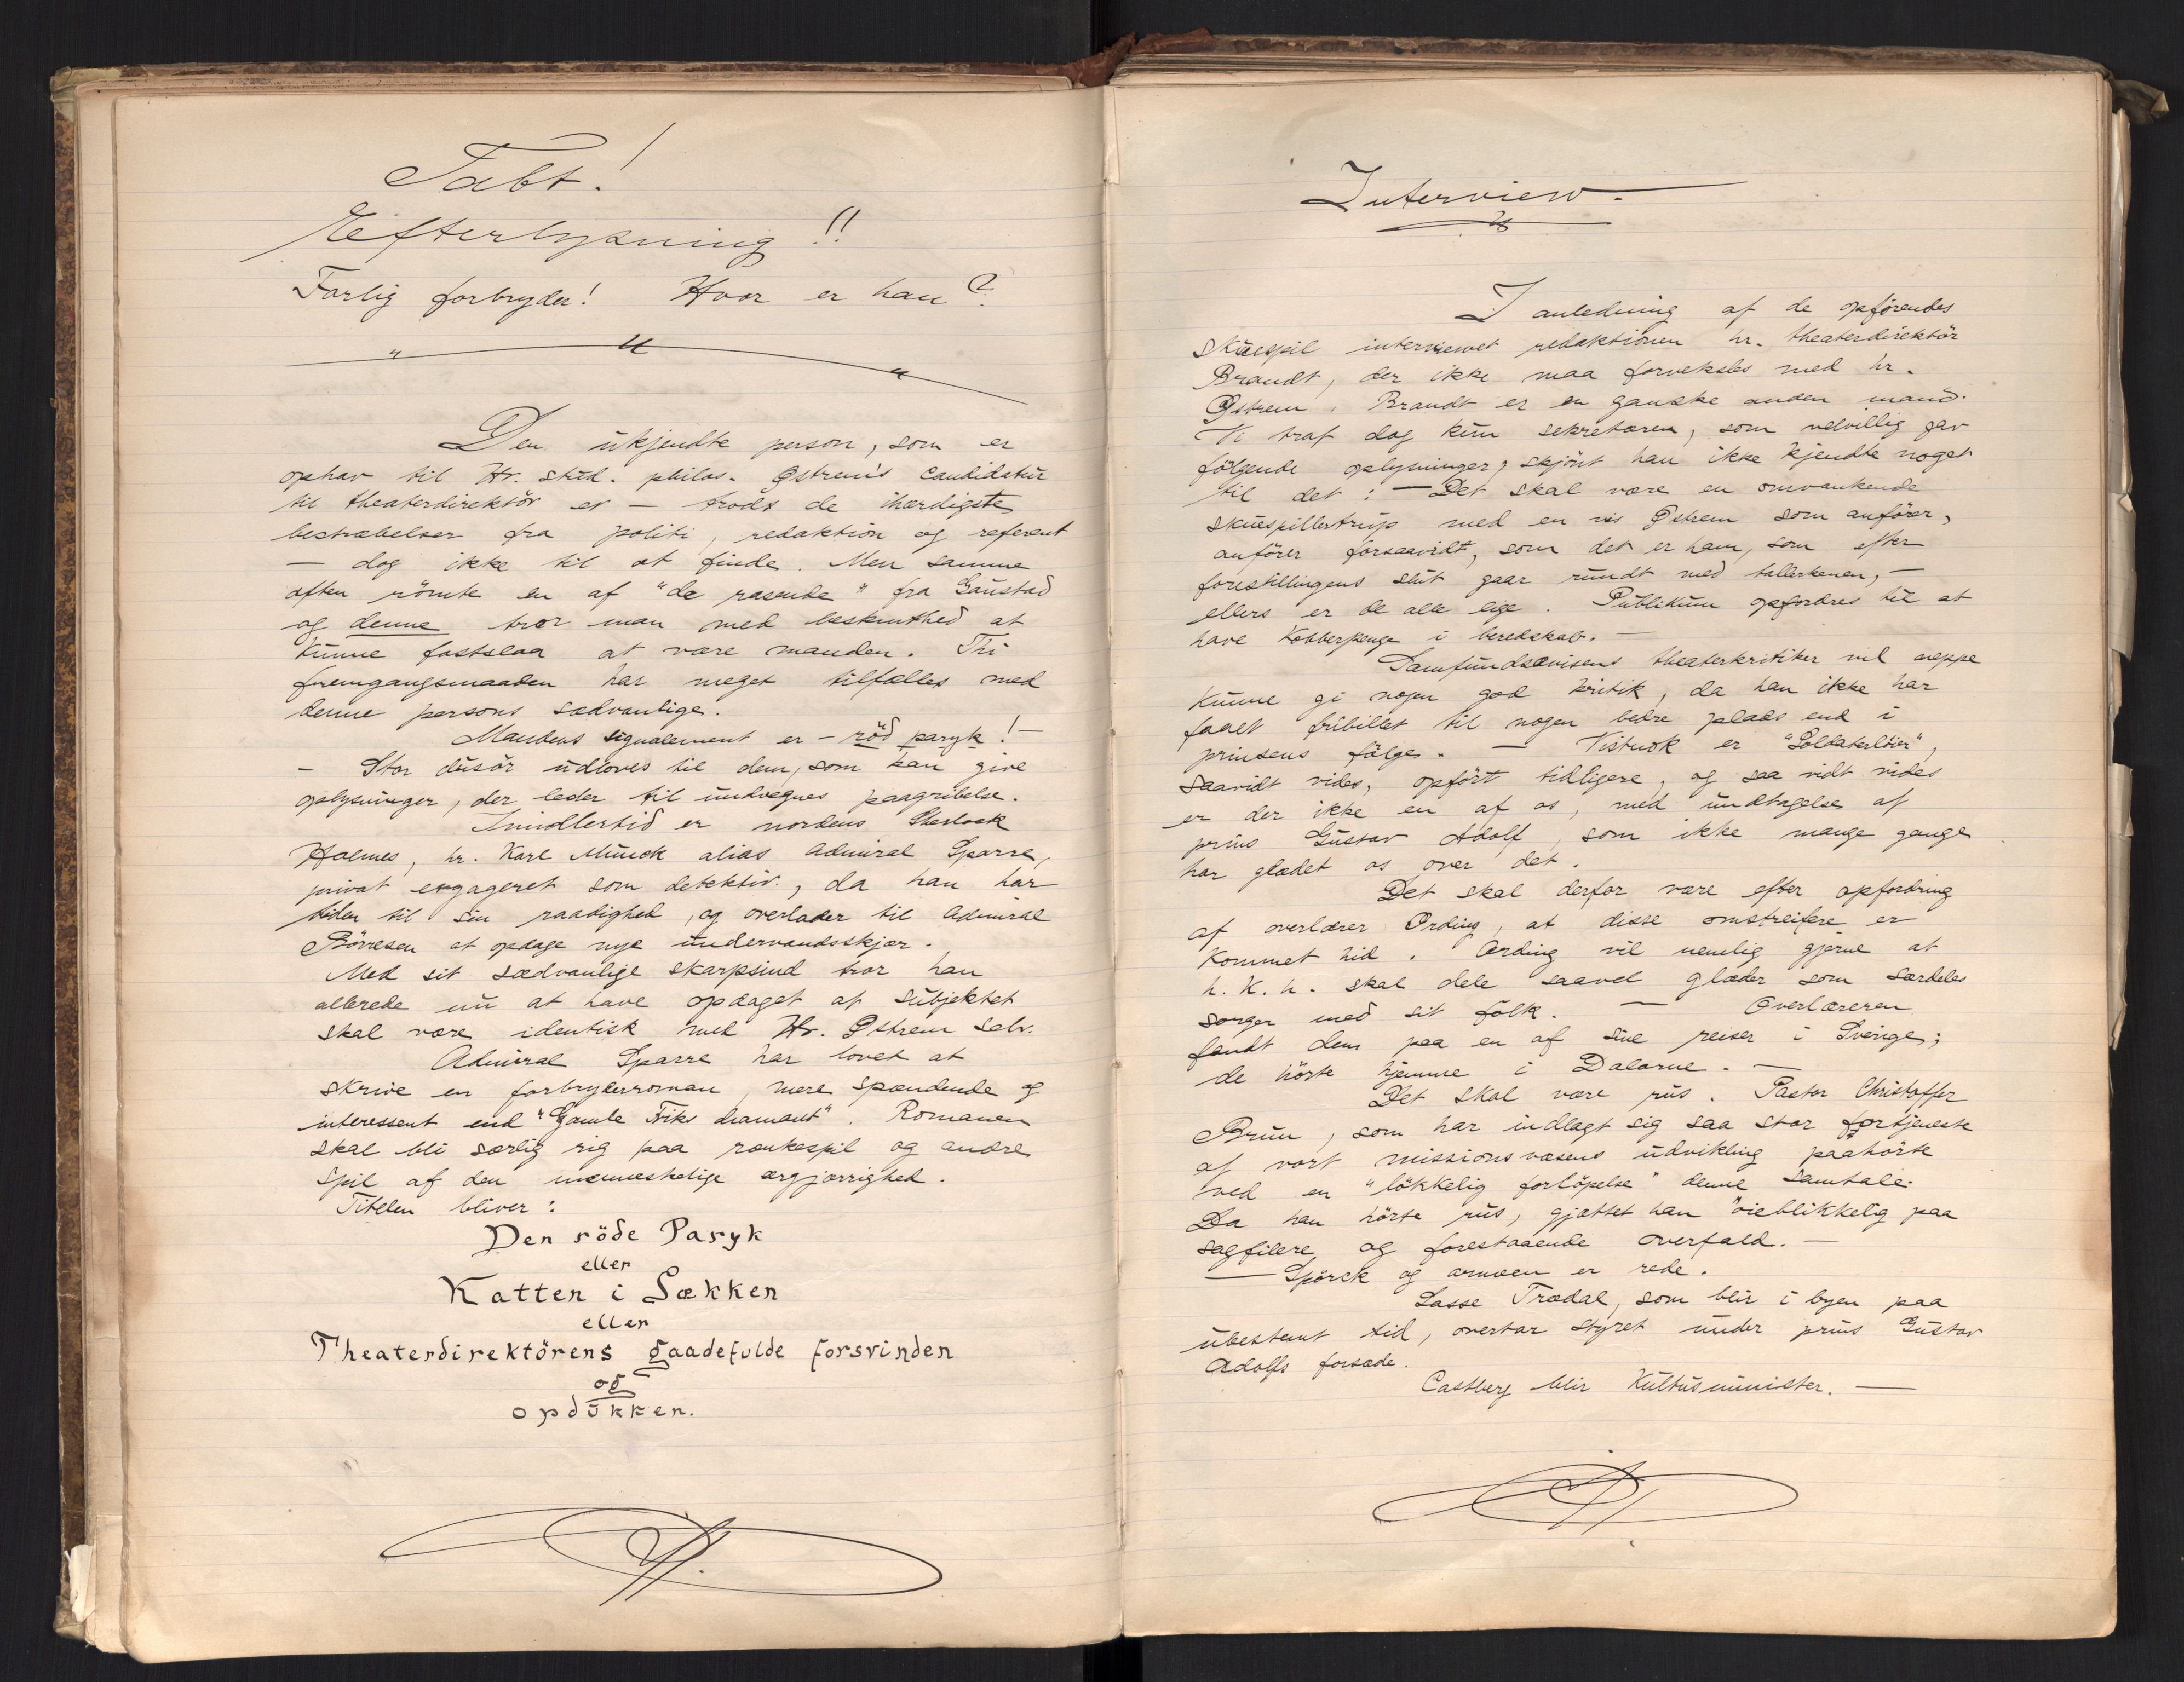 Tabt!
Eefterlysning!!
Farlig forbryder! Hvor er han?
Den ukjendte person, som er
ophav til Hr. stud. philos. Østrem's candidatur
til theaterdirektör er — trods de ihærdigste
bestræbelser fra politi, redaktion og referent
— dog ikke til at finde. Men samme
aften römte en af "de rasende" fra Gaustad
og denne tror man med beskemthed at
kunne fastslaa at være manden. Thi
fremgangsmaaden har meget tilfælles med
denne persons sædvanlige.
Mandens signalement er – röd paryk! –
– Stor dusör udloves til dem, som kan give
oplysninger, der leder til undvegnes paagribelse.
Imidlertid er nordens Sherlock
Holmes, hr. Karl Munck alias Admiral Sparre,
privat engageret som detektiv, da han har
tiden til sin raadighed, og overlader til Admiral
Börresen at opdage nye undervandsskjær.
Med sit sædvanlige skarpsind tror han
allerede nu at have opdaget at subjektet
skal være identisk med Hr. Østrem selv.
Admiral Sparre har lovet at
skrive en forbryderroman, mere spændende og
interessent end "Gamle Fiks diamant". Romanen
skal bli særlig rig paa rænkespil og andre
spil af den menneskelige ærgjærrighed.
Titelen bliver:
Den röde Paryk
eller
Katten i Sækken
eller
Theaterdirektörens gaadefulde forsvinden
og
opdukken.
Interview.
I anledning af de opförendes
skuespil interviewet redaktionen hr. theaterdirektör
Brandt, der ikke maa forveksles med hr.
Østrem. Brandt er en ganske anden mand.
Vi traf dog kun sekretæren, som velvillig gav
følgende oplysninger, skjönt han ikke kjendte noget
til det: — Det skal være en omvankende
skuespillertrup med en vis Østrem som anförer,
anförer forsaavidt, som det er ham, som efter
forestillingens slut gaar rundt med tallerkenen, —
ellers er de alle lige. Publikum opfordres til at
have Kobberpenge i beredskab. —
Samfundsavisens theaterkritiker vil neppe
kunne gi nogen god kritik, da han ikke har
faaet fribillet til nogen bedre plads end i
prinsens fölge. — Vistnok er "Soldaterlöier",
saavidt vides, opfört tidligere, og saa vidt vides
er der ikke en af os, med undtagelse af
prins Gustav Adolf, som ikke mange gange
har glædet os over det.
Det skal derfor være efter opfordring
af overlærer Ording, at disse omstreifere er
kommet hid. Ording vil nemlig gjerne at
h. k. h. skal dele saavel glæder som særdeles
sorger med sit folk. — Overlæreren
fandt dem paa en af sine reiser i Sverige;
de hörte hjemme i Dalarne. —
Det skal være rus. Pastor Christoffer
Brun, som har indlagt sig saa stor fortjeneste
af vort missionsvæsens udvikling paahörte
ved en "lökkelig forlöpelse" denne samtale.
Da han hörte rus, gjættet han öieblikkelig paa
sagfilere og forestaaende overfald. —
— Spörck og armeen er rede.
Lasse Trædal, som blir i byen paa
ubestemt tid, overtar styret under prins Gustav
Adolfs forsæde.
Castberg blir Kultusminister. —